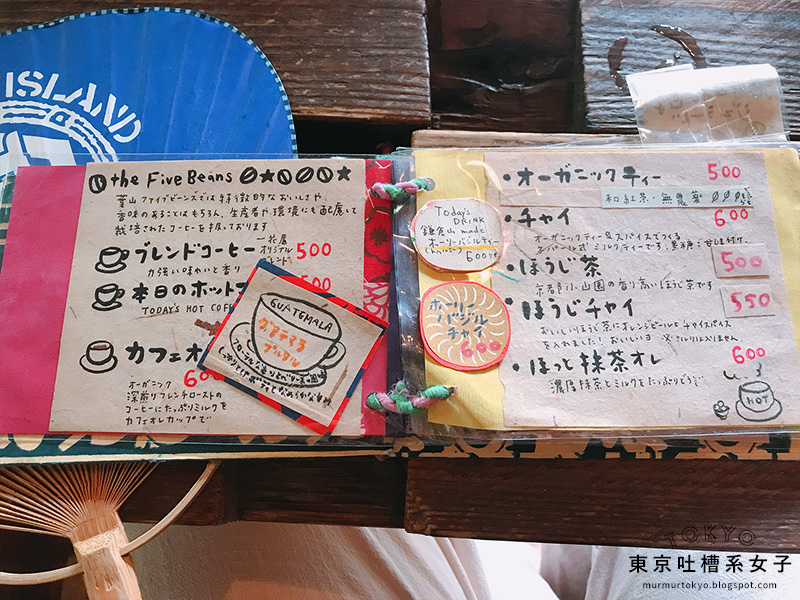 ISLAND
the Five Beans
葉山ファイブビーンズでは特徴的なおいしさや
香味のあることはもちろん、生産者や環境にも配慮して
栽培されたコーヒーを扱っております
ブレンドコーヒー
一花屋
オリジナル
ブレンド
500
力強い味わいと香り
本日のホット
TODAY'S HOT COFF
カフェオ
600
オーガニック
深煎りフレンチローストの
コーヒーにたっぷりミルクを
カフェオレカップで
GUATEMALA
グアテマラ
TODAY'S
DRINK
鎌倉山 made
ホーリーバジルティー
600
ホーリー
バジル
チャイ
600
・オーガニックティー 500
和紅茶・無農薬
・チャイ 600
オーガニックティー&スパイスでつくる
ネパール式ミルクティーです。黒糖で甘味付け。
・ほうじ茶 500
京都小山園の香り高いほうじ茶です
・ほうじチャイ 550
おいしいほうじ茶にオレンジピールとチャイスパイス
を入れました! おいしいヨ ※ミルクは入りません。
・ほっと抹茶オレ 600
濃厚抹茶とミルクをたっぷりどうぞ
HOT
TOKYO
東京吐槽系女子
murmurtokyo.blogspot.com